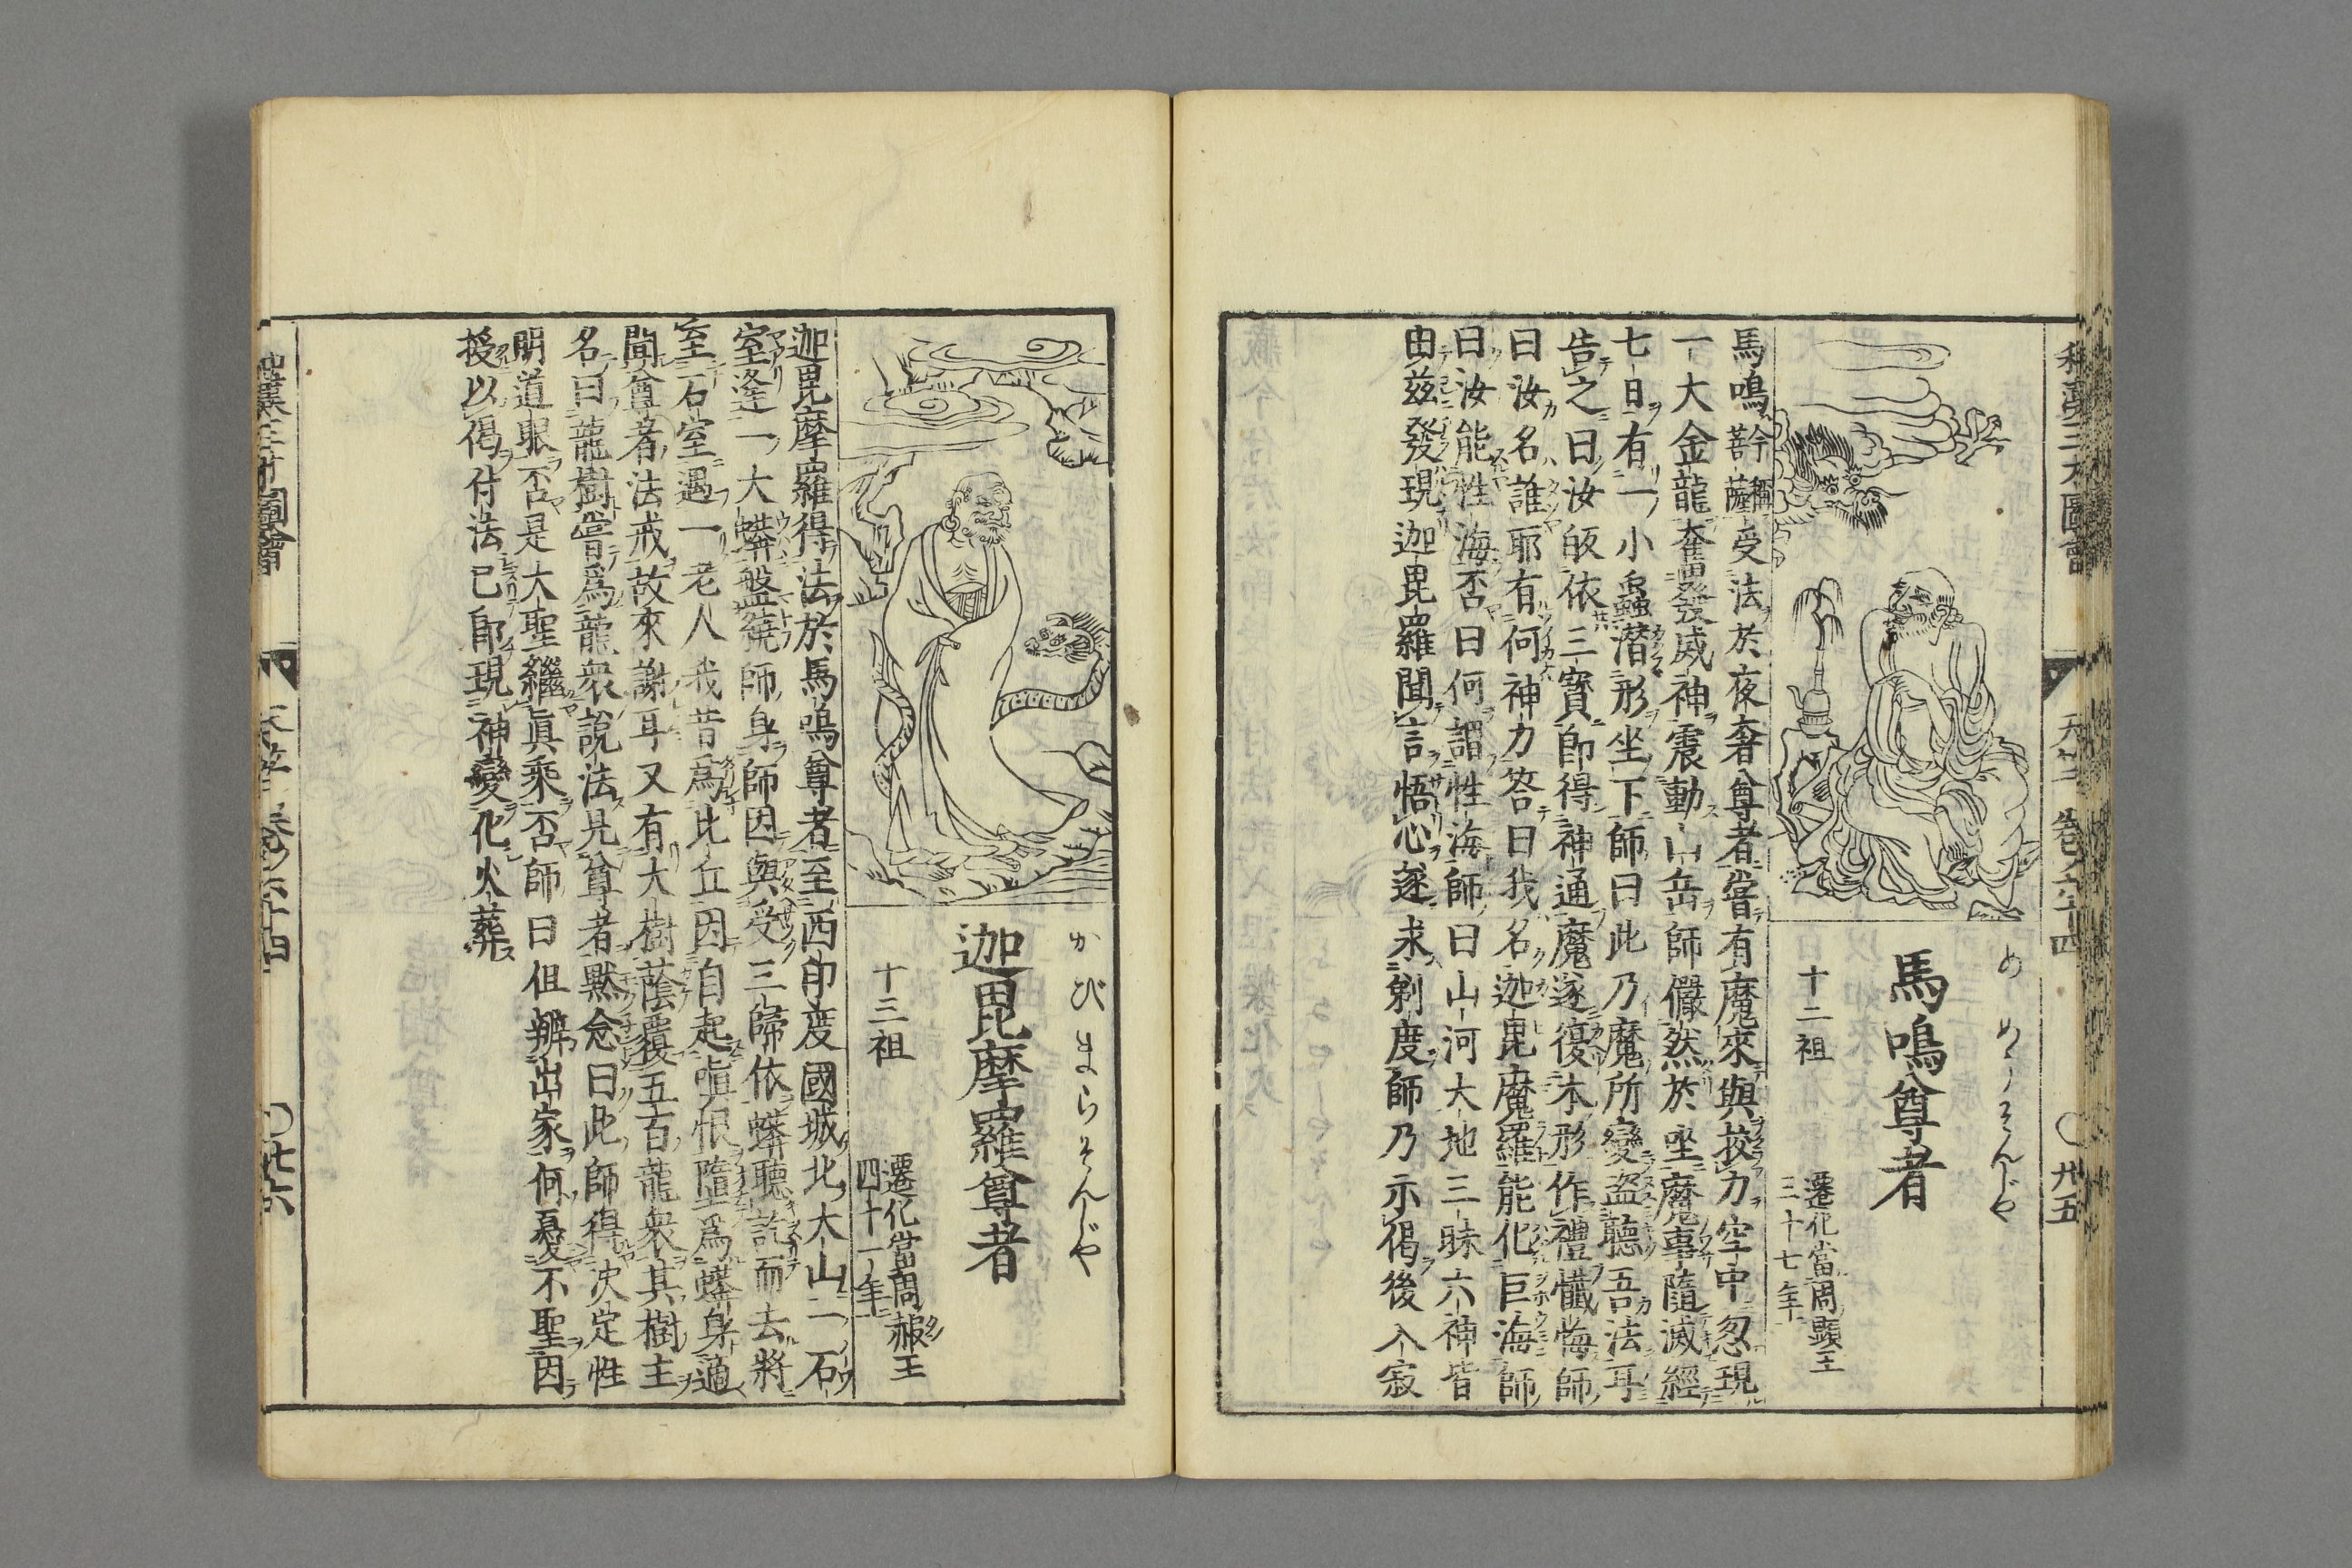 和漢三才圖會
天竺 巻六十四
〇 卅五
めめうそんじや
馬鳴尊者
十二祖
遷化當周顯王
三十七年
馬鳴今稱菩薩受法於夜奢尊者嘗有魔來與挍力空中忽現
一大金龍奮發威神震動山岳師儼然於坐魔事隨滅經
七日有一小蟲潜形坐下師曰此乃魔所變盗聽吾法耳
告之曰汝皈依三寶即得神通魔遂復本形作禮懺悔師
曰汝名誰耶有何神力答曰我名迦毘魔羅能化巨海師
曰汝能性海否曰何謂性海師曰山河大地三昧六神皆
由兹發現迦毘羅聞言悟心遂求剃度師乃示偈後入寂
かびまらそんじや
迦毘摩羅尊者
十三祖
遷化當周赧王
四十一年
迦毘摩羅得法於馬鳴尊者至西印度國城北大山一石
室逢一大蟒盤繞師身師因與受三歸依蟒聽訖而去將
至石室遇一老人我昔爲比丘因自起嗔恨墮爲蟒身適
聞尊者法戒故來謝耳又有大樹蔭覆五百龍衆其樹主
名曰龍樹嘗爲龍衆說法見尊者黙念曰此師得决定性
明道眼否是大聖繼眞乘否師曰但辨出家何憂不聖因
授以偈付法已即現神變化火葬
和漢三才圖會
天竺 巻六十四
〇 卅六